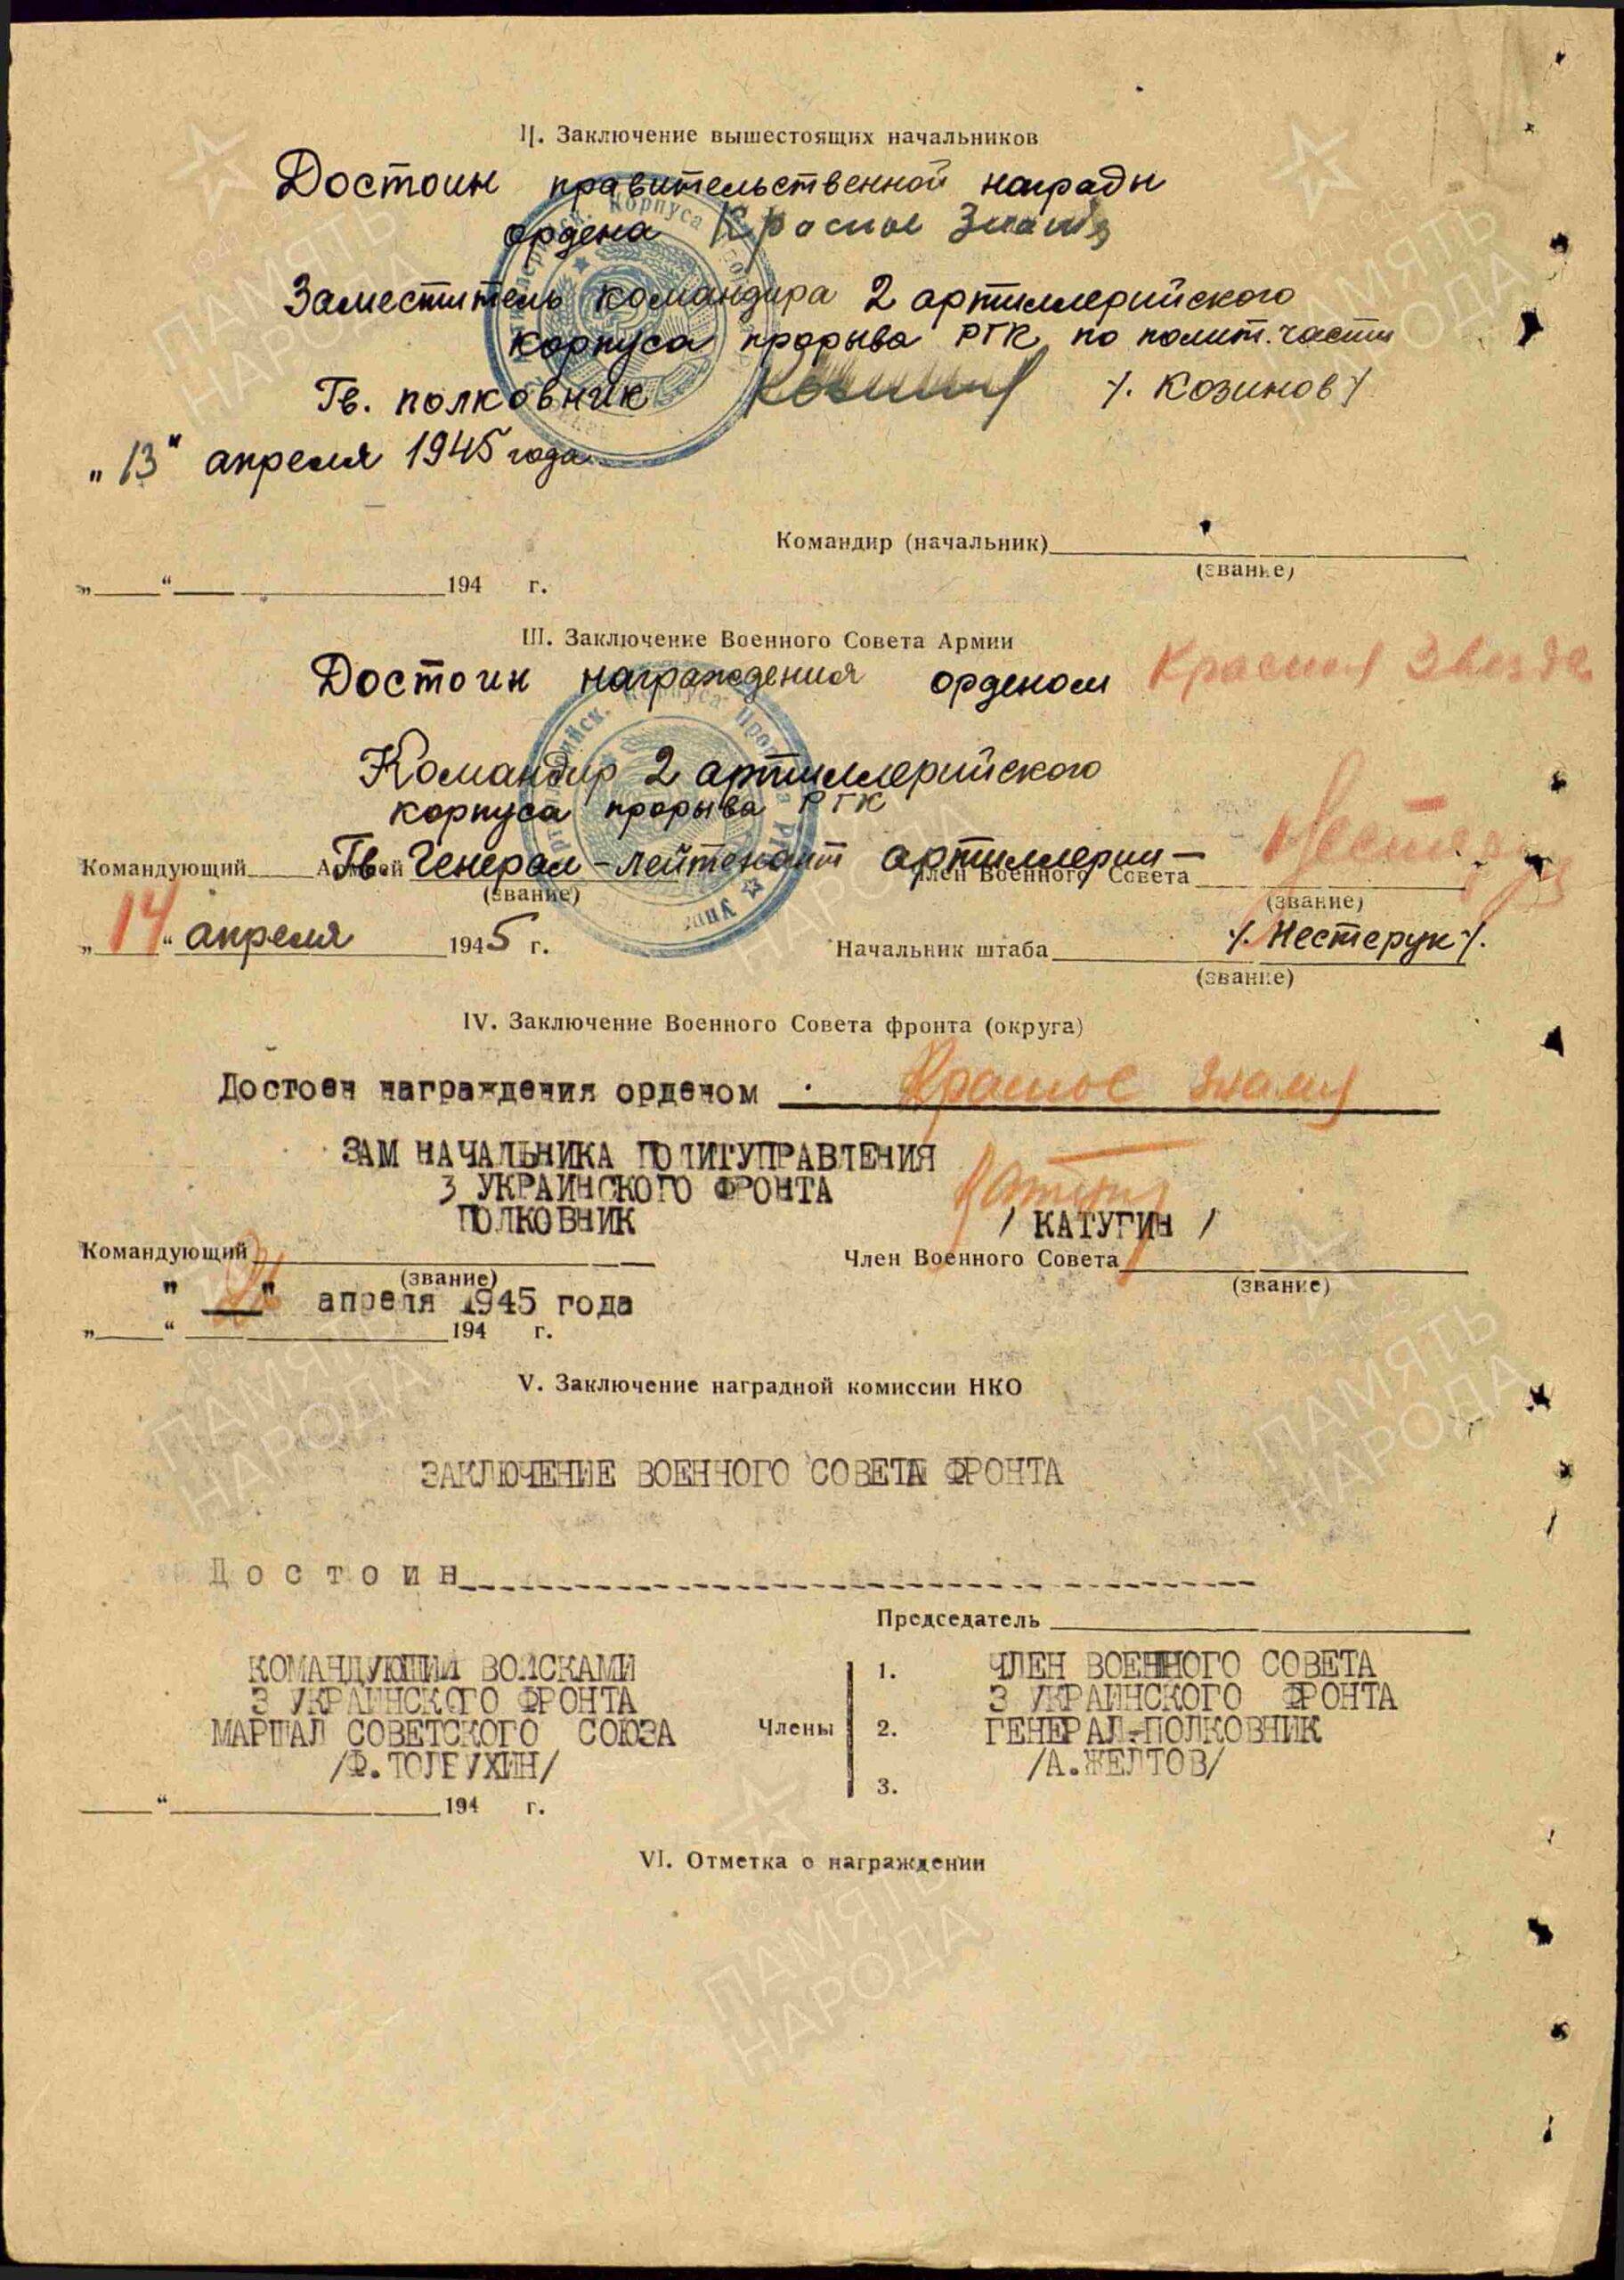 II. Заключение вышестоящих начальников
Достоин правительственной награды
ордена Красное Знамя
Заместитель командира 2 артиллерийского
корпуса прорыва РГК по полит. части
Гв. полковник /. Козинов /
„13" апреля 1945 года
Командир (начальник)
(звание)
„ “ 194 г.
III. Заключение Военного Совета Армии
Достоин награждения орденом Красная Звезда
Командир 2 артиллерийского
корпуса прорыва РГК
Командующий Армией Гв. Генерал-лейтенант артиллерии-
Член Военного Совета
(звание) (звание)
„14“ апреля 1945 г. Начальник штаба /. Нестерук /.
(звание)
IV. Заключение Военного Совета фронта (округа)
Достоен награждения орденом Красное Знамя
ЗАМ НАЧАЛЬНИКА ПОЛИТУПРАВЛЕНИЯ
3 УКРАИНСКОГО ФРОНТА
ПОЛКОВНИК / КАТУГИН /
Командующий Член Военного Совета
(звание) (звание)
" " апреля 1945 года
„ “ 194 г.
V. Заключение наградной комиссии НКО
ЗАКЛЮЧЕНИЕ ВОЕННОГО СОВЕТА ФРОНТА
Достоин
Председатель
КОМАНДУЮЩИЙ ВОЙСКАМИ 1. ЧЛЕН ВОЕННОГО СОВЕТА
3 УКРАИНСКОГО ФРОНТА 3 УКРАИНСКОГО ФРОНТА
МАРШАЛ СОВЕТСКОГО СОЮЗА Члены 2. ГЕНЕРАЛ-ПОЛКОВНИК
/Ф.ТОЛБУХИН/ /А.ЖЕЛТОВ/
3.
“ 194 г.
VI. Отметка о награждении
ПАМЯТЬ
НАРОДА